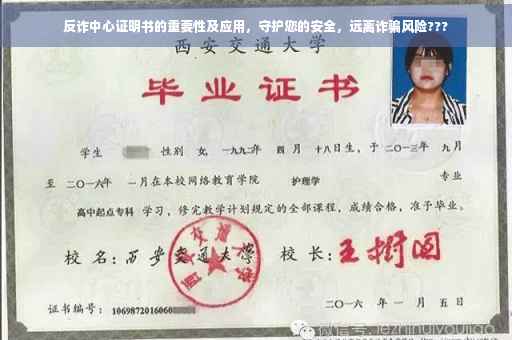 反诈中心证明书的重要性及应用，守护您的安全，远离诈骗风险???
西安交通大学
毕业证书
学生 性别 女，一九九二年 四月 十八日生，于 二〇一三年 九月
至 二〇一六年 一月在本校网络教育学院 护理学 专业
高中起点专科 学习，修完教学计划规定的全部课程，成绩合格，准予毕业。
校名：西安交通大学 校长：王树国
西安交通大学
证书编号：1069872016060
二〇一六年 一月 五日
微信号: jiezhinuiyoujiao